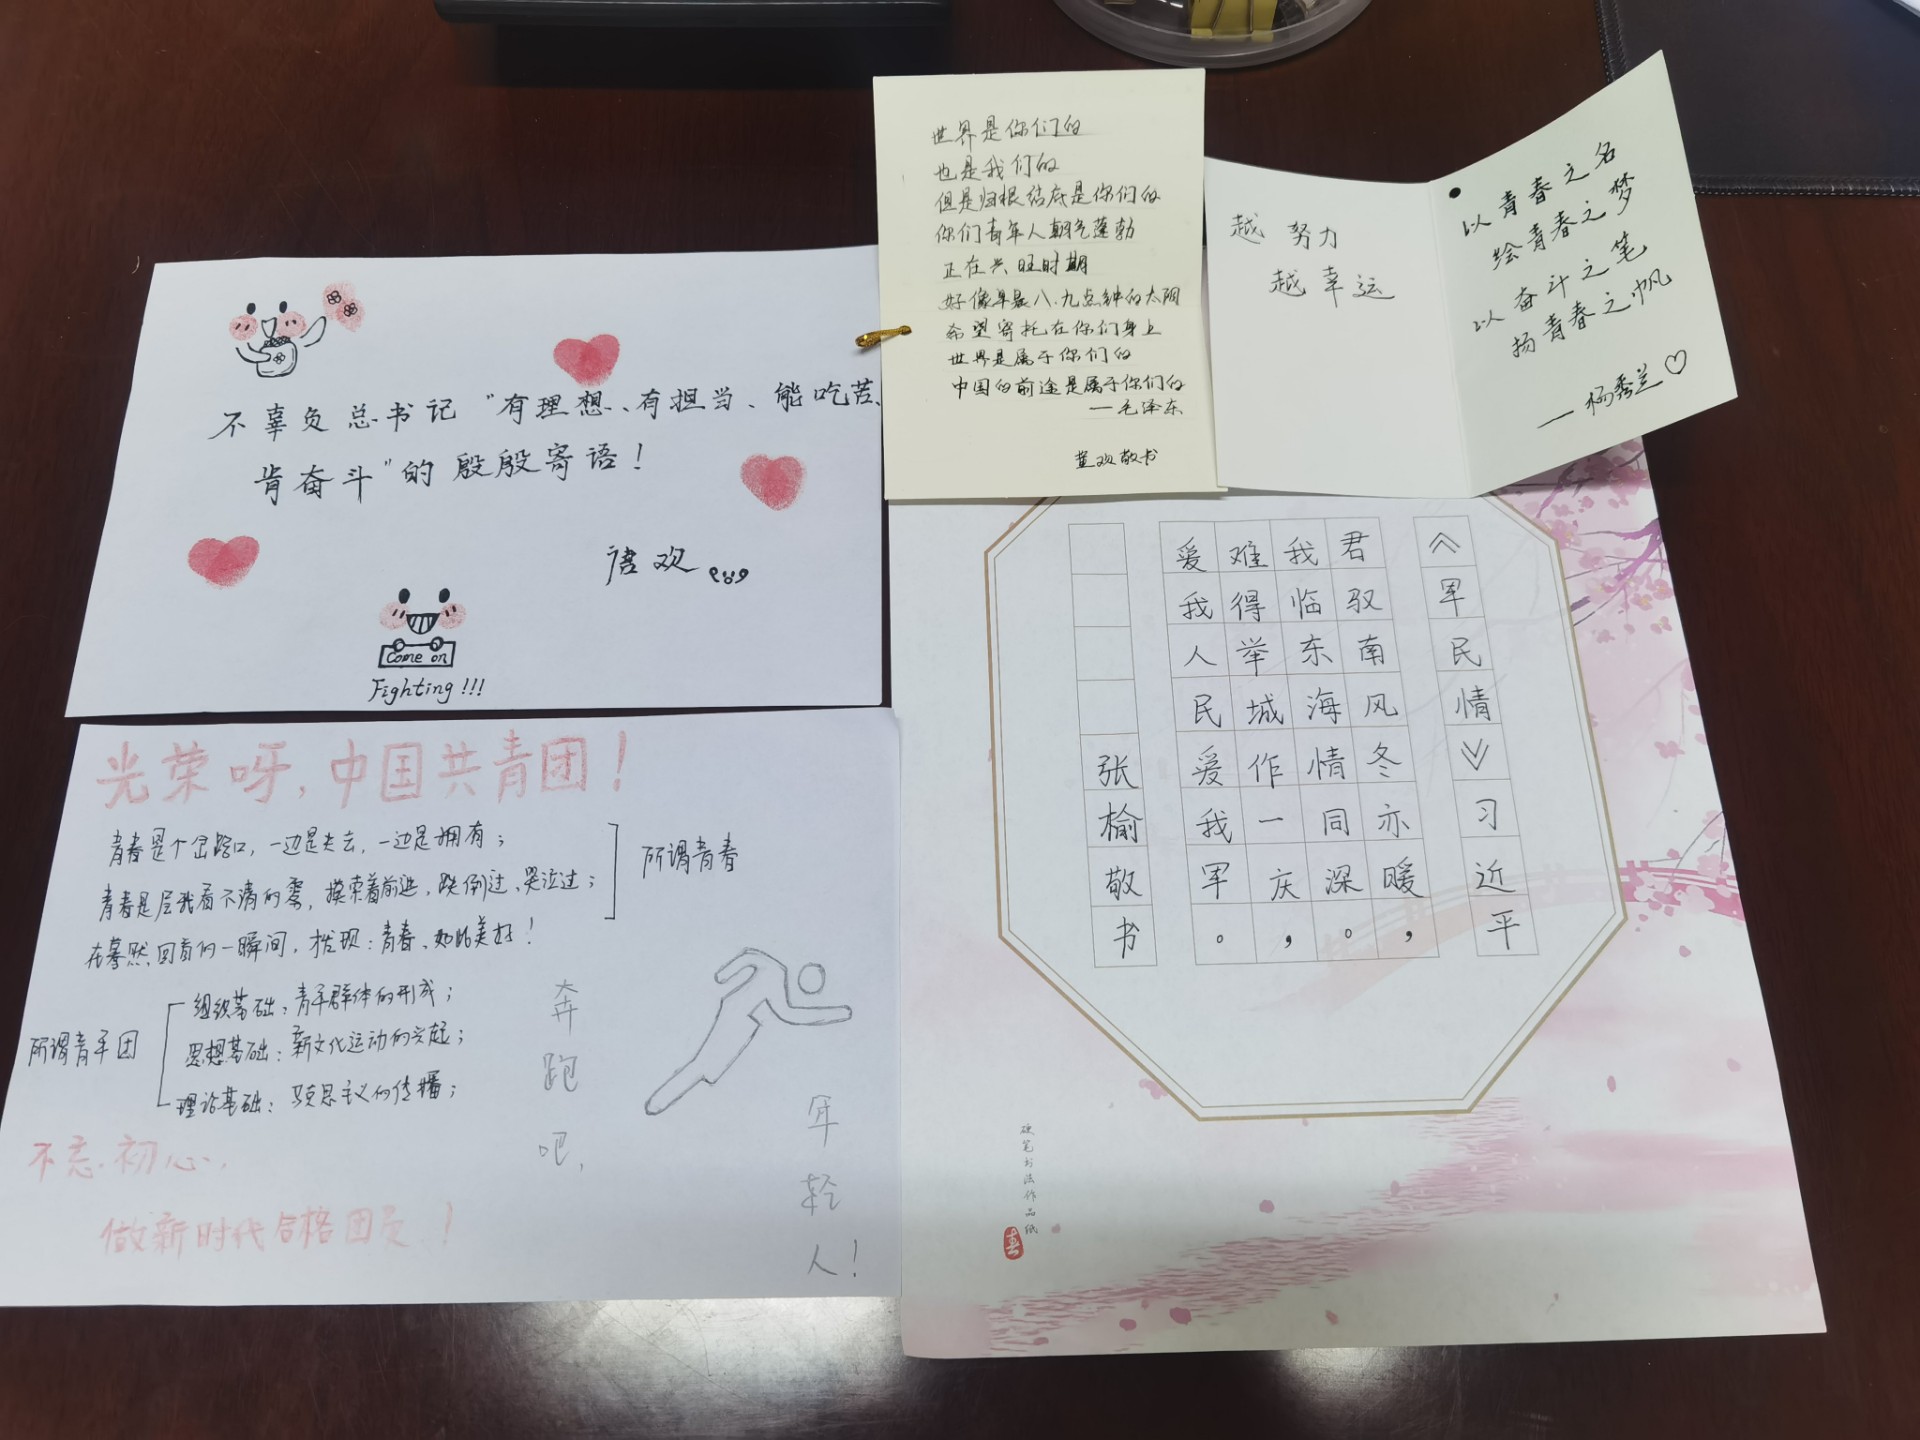 不辜负总书记“有理想、有担当、能吃苦、
肯奋斗”的殷殷寄语！
唐欢
Come on
Fighting!!!
世界是你们的
也是我们的
但是归根结底是你们的
你们青年人朝气蓬勃
正在兴旺时期
好像早晨八、九点钟的太阳
希望寄托在你们身上
世界是属于你们的
中国的前途是属于你们的
—毛泽东
欢敬书
越努力
越幸运
以青春之名
绘青春之梦
以奋斗之笔
扬青春之帆
—杨秀兰
光荣呀,中国共青团！
青春是个岔路口,一边是失去,一边是拥有；
青春是层我看不清的雾,摸索着前进,跌倒过、哭泣过；
在蓦然回首的一瞬间,发现：青春、如此美好！
所谓青春
所谓青年团
组织基础：青年群体的形成；
思想基础：新文化运动的兴起；
理论基础：马克思主义的传播；
不忘初心,
做新时代合格团员！
奔跑吧,
年轻人！
《军民情》习近平
君驭南风冬亦暖,
我临东海情同深。
难得举城作一庆,
爱我人民爱我军。
张榆敬书
硬笔书法作品纸